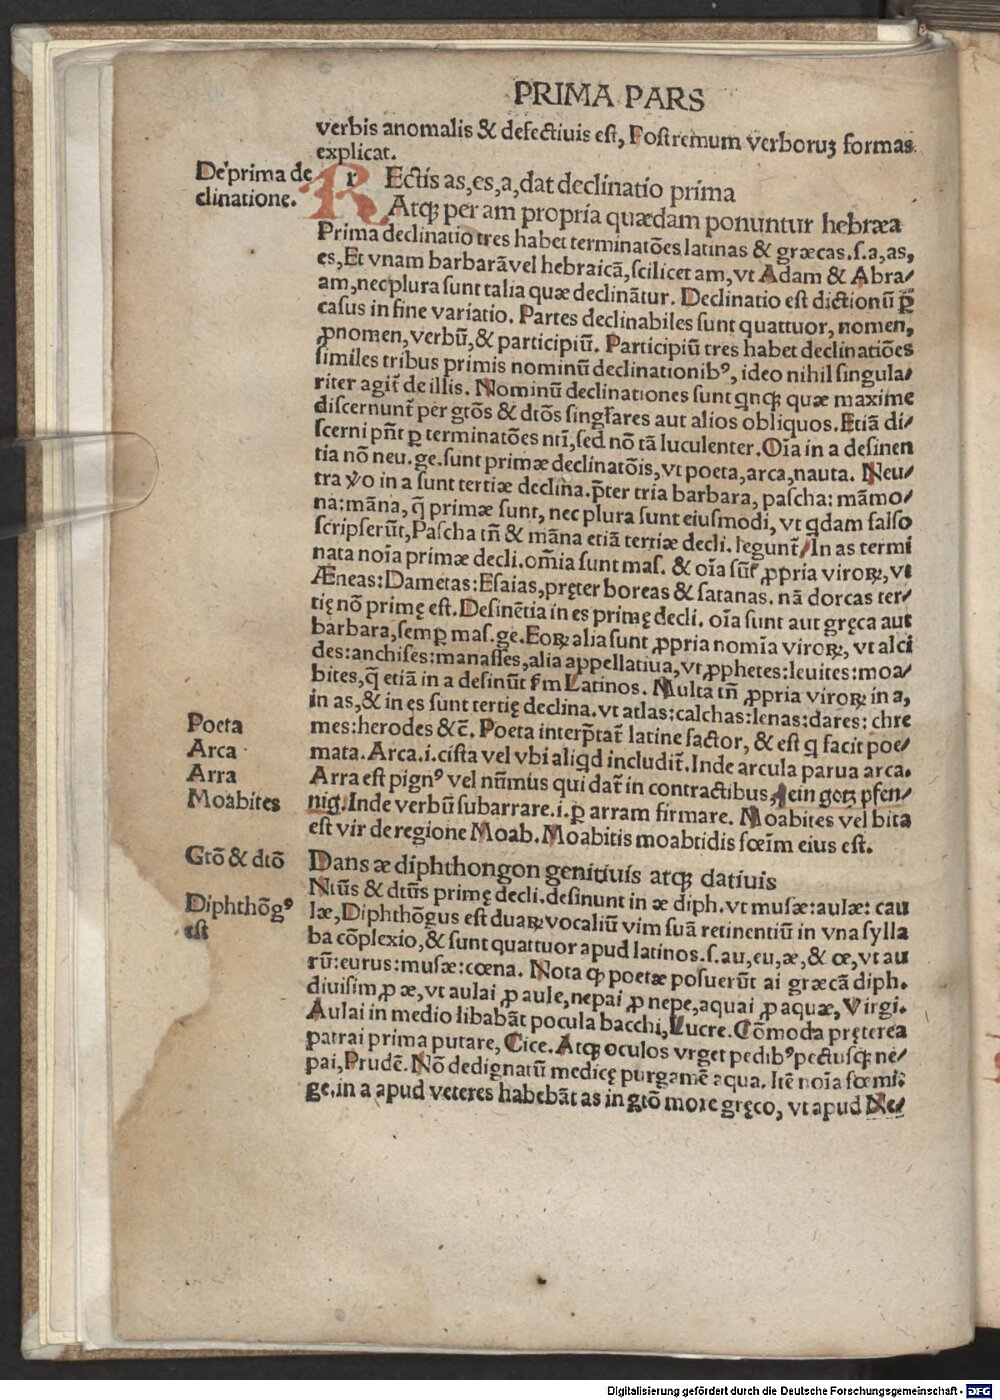 PRIMA PARS
verbis anomalis & defectiuis est, Postremum verboruꝫ formas
explicat.
De prima de
clinatione.
r Ectis as, es, a, dat declinatio prima
Atqꝫ per am propria quædam ponuntur hebræa
Prima declinatio tres habet terminatōes latinas & græcas.s.a,as,
es,Et vnam barbarā vel hebraicā, scilicet am, vt Adam & Abra/
am, nec plura sunt talia quæ declinātur. Declinatio est dictionū ꝑ
casus in fine variatio. Partes declinabiles sunt quattuor, nomen,
ꝓnomen, verbū, & participiū. Participiū tres habet declinatiōes
similes tribus primis nominū declinationibꝰ, ideo nihil singula/
riter agit̄ de illis. Nominū declinationes sunt qnqꝫ quæ maxime
discernunt̄ per gtōs & dtōs singłares aut alios obliquos. Etiā di/
scerni pn̄t ꝑ terminatōes nt̄i, sed nō tā luculenter. Oīa in a desinen
tia nō neu. ge. sunt primæ declinatōis, vt poeta, arca, nauta. Neu/
tra ꝟo in a sunt tertiæ declina. p̄ter tria barbara, pascha: māmo/
na: māna, q̄ primæ sunt, nec plura sunt eiusmodi, vt qdam falso
scripserūt, Pascha tn̄ & māna etiā tertiæ decli. legunt̄/ In as termi
nata noīa primæ decli. om̄ia sunt mas. & oīa sūt ꝓpria viroꝝ, vt
Æneas: Dametas: Esaias, pręter boreas & satanas. nā dorcas ter/
tię nō primę est. Desinētia in es primę decli. oīa sunt aut gręca aut
barbara, semꝑ mas. ge. Eoꝝ alia sunt ꝓpria nomīa viroꝝ, vt alci
des: anchises: manasses, alia appellatiua, vt ꝓphetes: leuites: moa/
bites, q̄ etiā in a desinūt fm Latinos. Multa tn̄ ꝓpria viroꝝ in a,
in as, & in es sunt tertię declina. vt atlas: calchas: lenas: dares: chre
Poeta
mes: herodes &c̄. Poeta interp̄tat̄ latine factor, & est q facit poe/
Arca
mata. Arca.i. cista vel vbi aliqd includit̄. Inde arcula parua arca.
Arra
Arra est pignꝰ vel nūmus qui dat̄ in contractibus, ein gotz pfen/
Moabites
nig. Inde verbū subarrare.i. ꝑ arram firmare. Moabites vel bita
est vir de regione Moab. Moabitis moabtidis fœim eius est.
Gtō & dtō
Dans æ diphthongon genitiuis atqꝫ datiuis
Ntūs & dtūs primę decli. desinunt in æ diph. vt musæ: aulæ: cau
Diphthōgꝰ
est
læ, Diphthōgus est duaꝝ vocaliū vim suā retinentiū in vna sylla
ba cōplexio, & sunt quattuor apud latinos.s. au, eu, æ, & œ, vt au
rū: eurus: musæ: cœna. Nota qꝫ poetæ posuerūt ai græcā diph.
diuisim ꝓ æ, vt aulai ꝓ aule, nepai ꝓ nepe, aquai ꝓ aquæ, Virgi.
Aulai in medio libabāt pocula bacchi, Lucre. Cōmoda pręterea
patrai prima putare, Cice. Atqꝫ oculos vrget pedibꝰ pectusqꝫ ne/
pai, Prudē. Nō dedignatū medicę purgamē aqua. Itē noīa fœmi.
ge. in a apud veteres habebāt as in gtō more gręco, vt apud Ne/
Digitalisierung gefördert durch die Deutsche Forschungsgemeinschaft - DFG